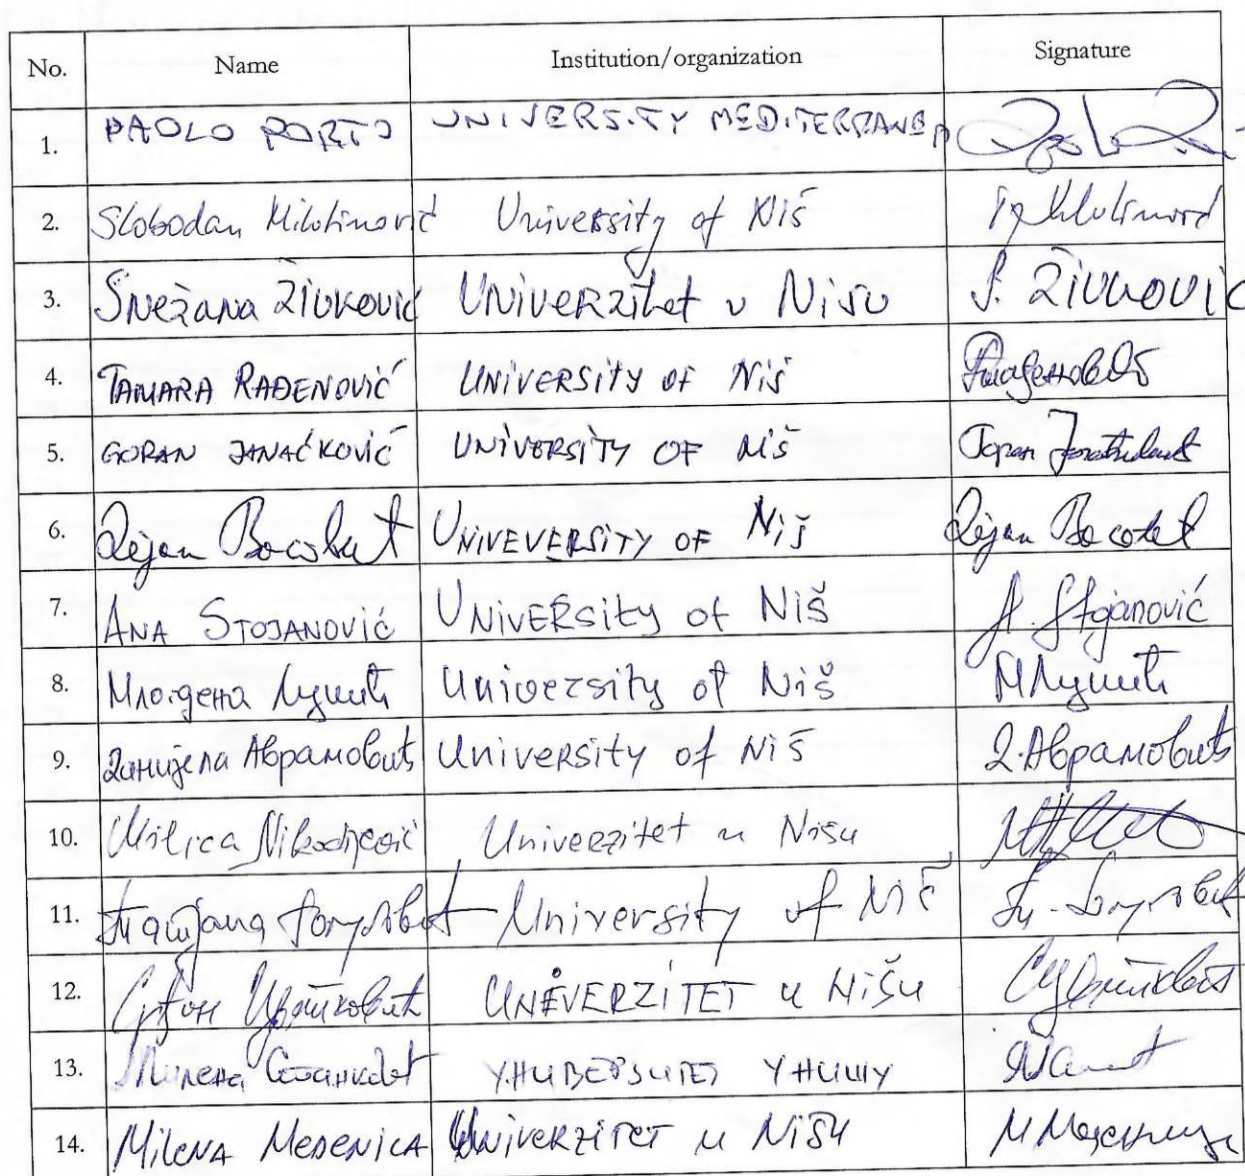 No. Name Institution/organization Signature
1. PAOLO PORTO UNIVERSITY MEDITERRANEA
2. Slobodan Milutinović University of Niš
3. Snežana Živković Univerzitet u Nisu S. ŽIVKOVIĆ
4. TAMARA RAĐENOVIĆ UNIVERSITY OF Niš
5. GORAN JANAĆKOVIĆ UNIVERSITY OF NiŠ Горан
6. Dejan UNIVEVERSITY OF Niš Dejan
7. ANA STOJANOVIĆ UNIVERSity of Niš A. Stojanović
8. Млађена Лушић University of Niš М Лушић
9. Данијела Аврамовић University of Niš Д. Аврамовић
10. Milica Nikodijević Univerzitet u Nišu
11. Татјана University of Niš
12. Срђан Цветковић UNIVERZITET u Nišu
13. Милена Станковић УНИВЕРЗИТЕТ У НИШУ
14. Milena MEDENICA Univerzitet u Nišu М Меденица